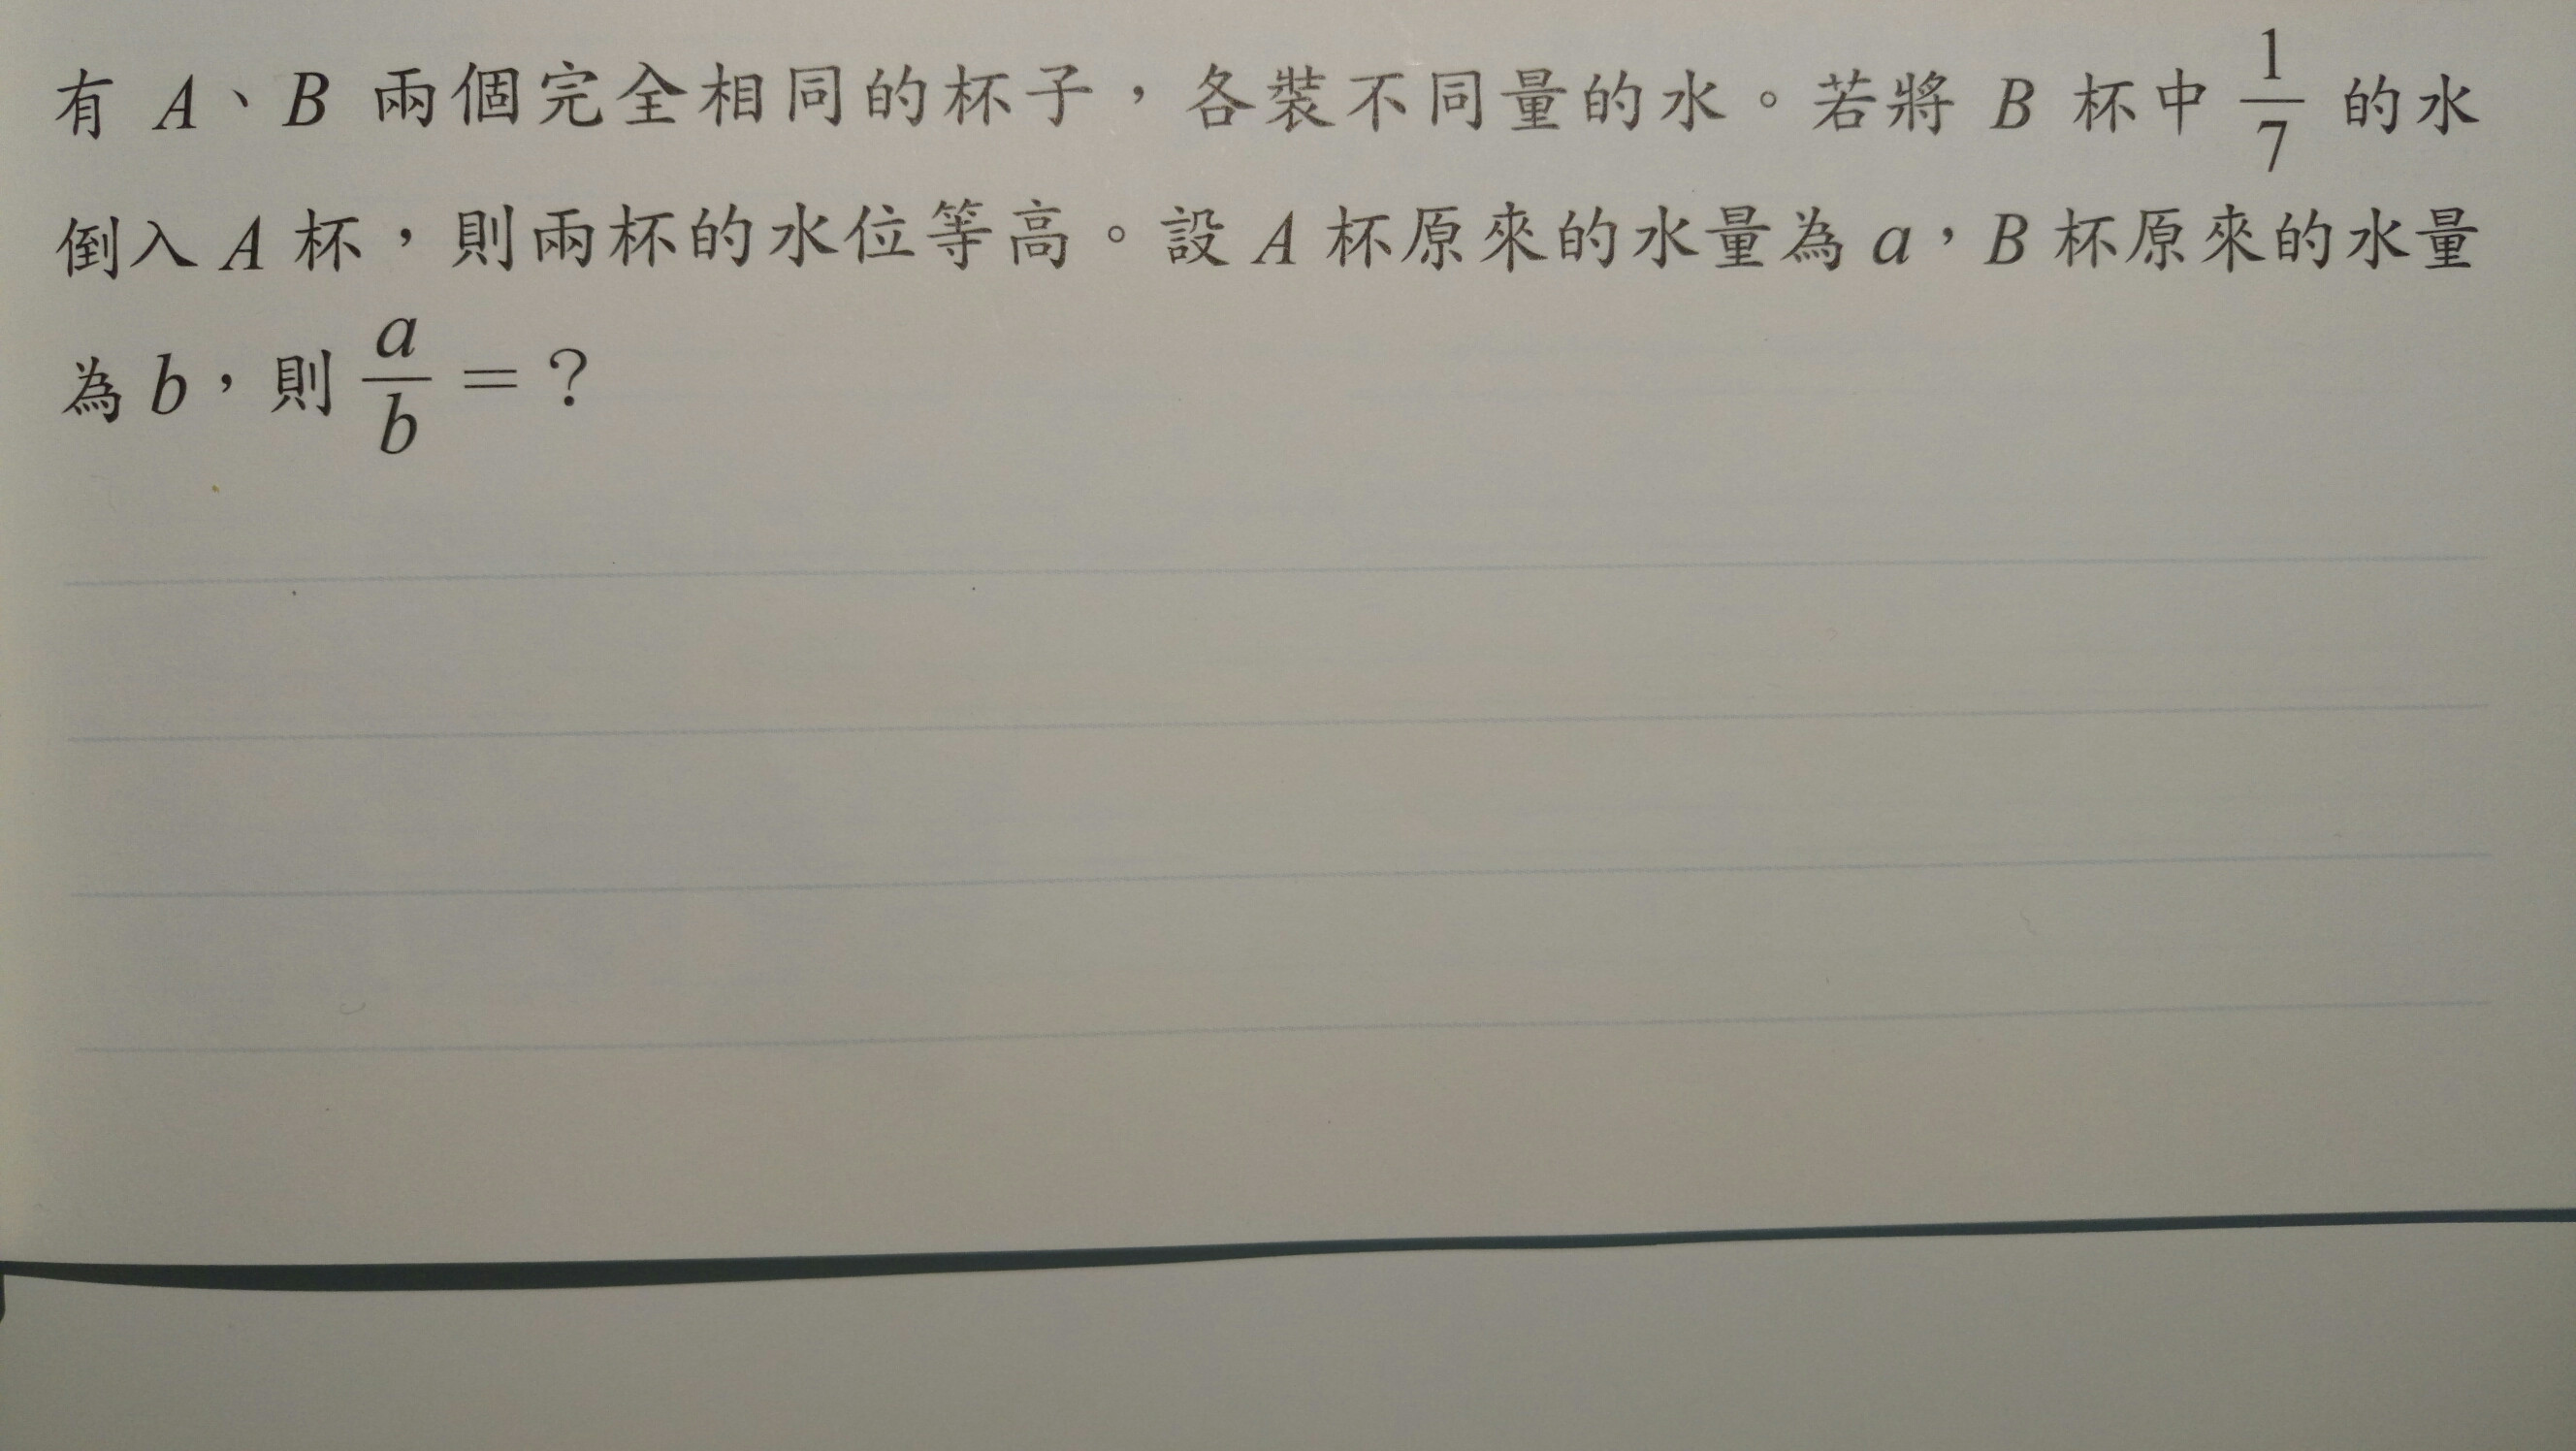 有 A、B 兩個完全相同的杯子，各裝不同量的水。若將 B 杯中 1/7 的水
倒入 A 杯，則兩杯的水位等高。設 A 杯原來的水量為 a，B 杯原來的水量
為 b，則 a/b = ?